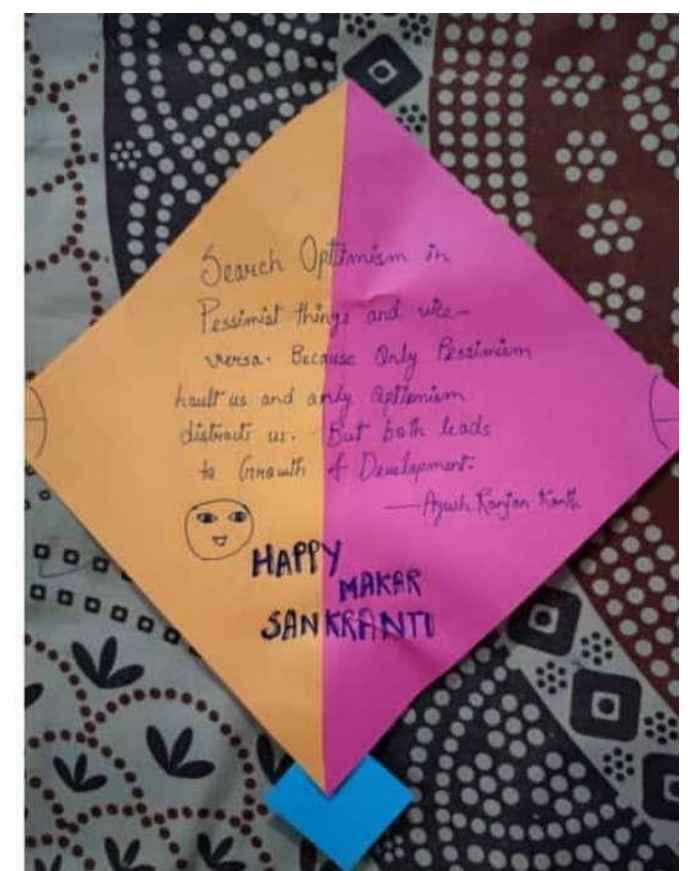 Search Optimism in
Pessimist things and vice-
versa. Because Only Pessimism
hault us and only optimism
distracts us. But both leads
to Growth & Development.
—Ayush Ranjan Kanth
HAPPY
MAKAR
SANKRANTI